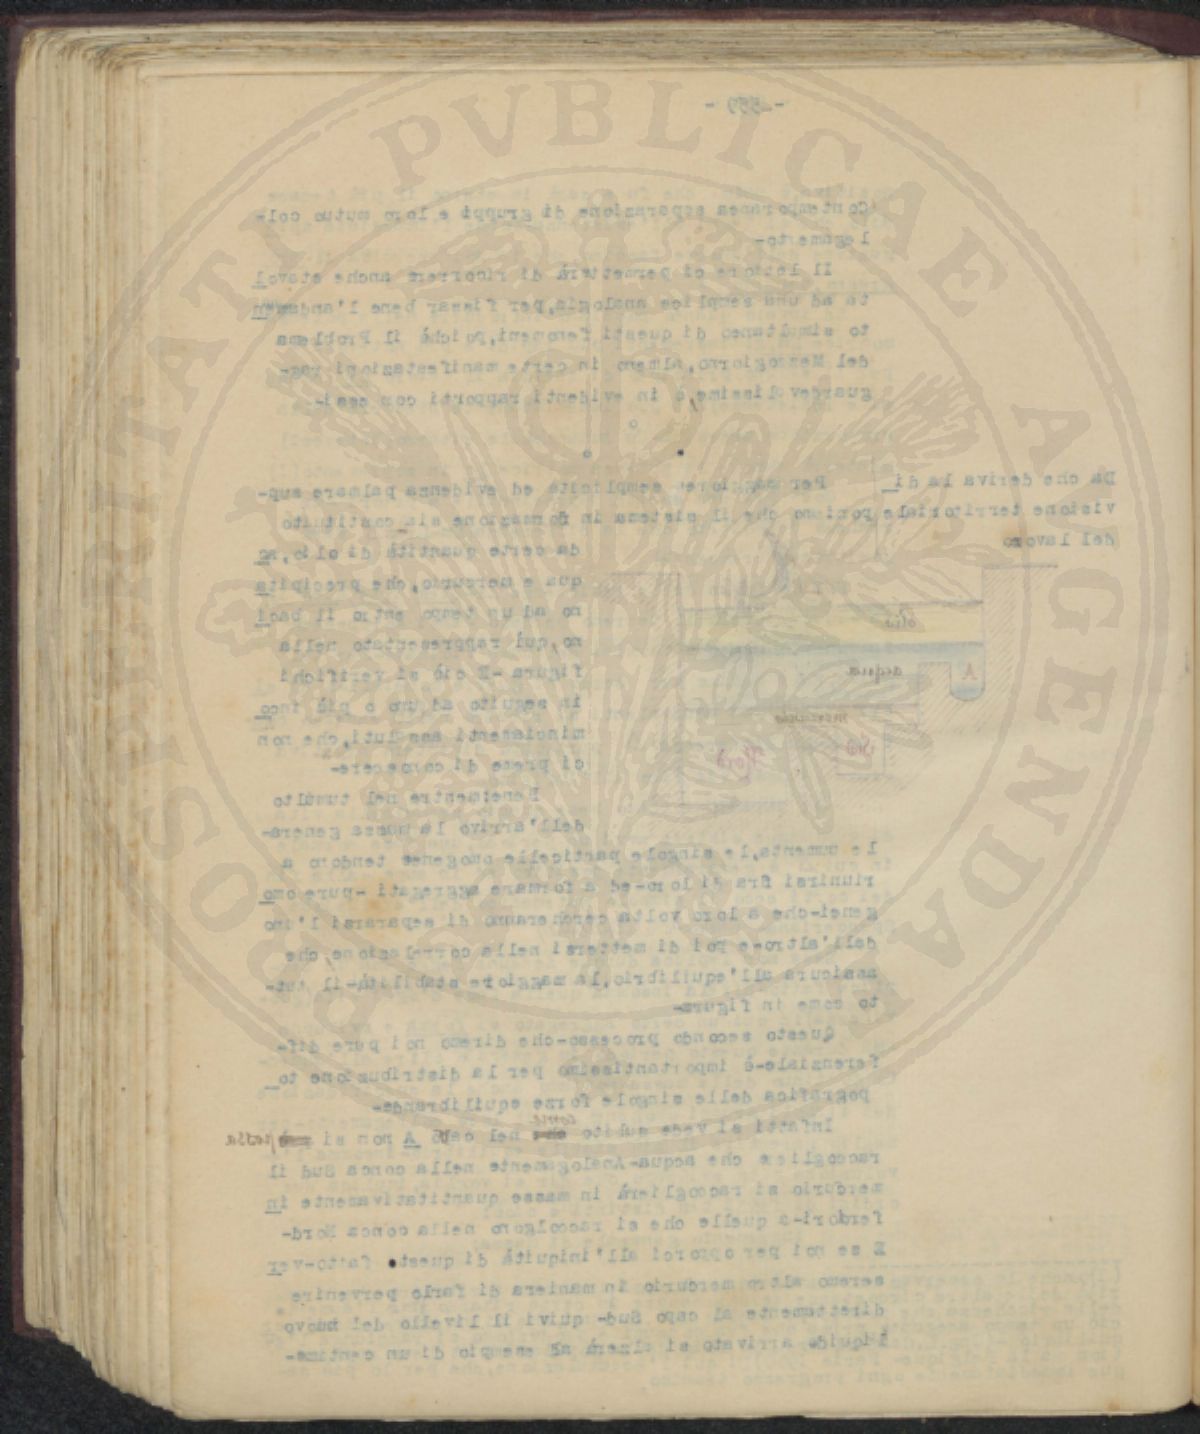 - 399 -
Contemporanea separazione di gruppi e loro mutuo col-
legamento-
Il lettore ci permetterà di ricorrere anche stavol
ta ad una semplice analogia, per fissar bene l'andamen
to simultaneo di questi fenomeni, poichè il Problema
del Mezzogiorno, almeno in certe manifestazioni rag-
guardevolissime, è in evidenti rapporti con essi-
Da che deriva la di
visione territoriale
del lavoro
Per maggiore semplicità ed evidenza palmare sup-
poniamo che il sistema in formazione sia costituito
da certe quantità di olio, ac
qua e mercurio, che precipita
no ad un tempo entro il baci
no, quì rappresentato nella
figura - E ciò si verifichi
in seguito ad uno o più inco
minciamenti assoluti, che non
ci preme di conoscere-
olio
acqua
A
mercurio
Sud
Nord
Bene: mentre nel tumulto
dell'arrivo la massa genera-
le aumenta, le singole particelle omogenee tendono a
riunirsi fra di loro-ed a formare aggregati -pure omo
genei-che a loro volta cercheranno di separarsi l'uno
dall'altro-e poi di mettersi nella correlazione, che
assicura all'equilibrio, la maggiore stabilità-il tut-
to come in figura-
Questo secondo processo-che diremo noi pure dif-
ferenziale-è importantissimo per la distribuzione to
pografica delle singole forze equilibrande-
Infatti si vede subito come nel caso A non si possa
raccogliere che acqua-Analogamente nella conca Sud il
mercurio si raccoglierà in masse quantitativamente in
feriori-a quelle che si raccolgono nella conca Nord-
E se noi per opporci all'iniquità di questo fatto-ver
seremo altro mercurio in maniera di farlo pervenire
direttamente al capo Sud- quivi il livello del nuovo
liquido arrivato si alzerà ad esempio di un centime-
PROSPERITATI PVBLICAE AVGENDAE